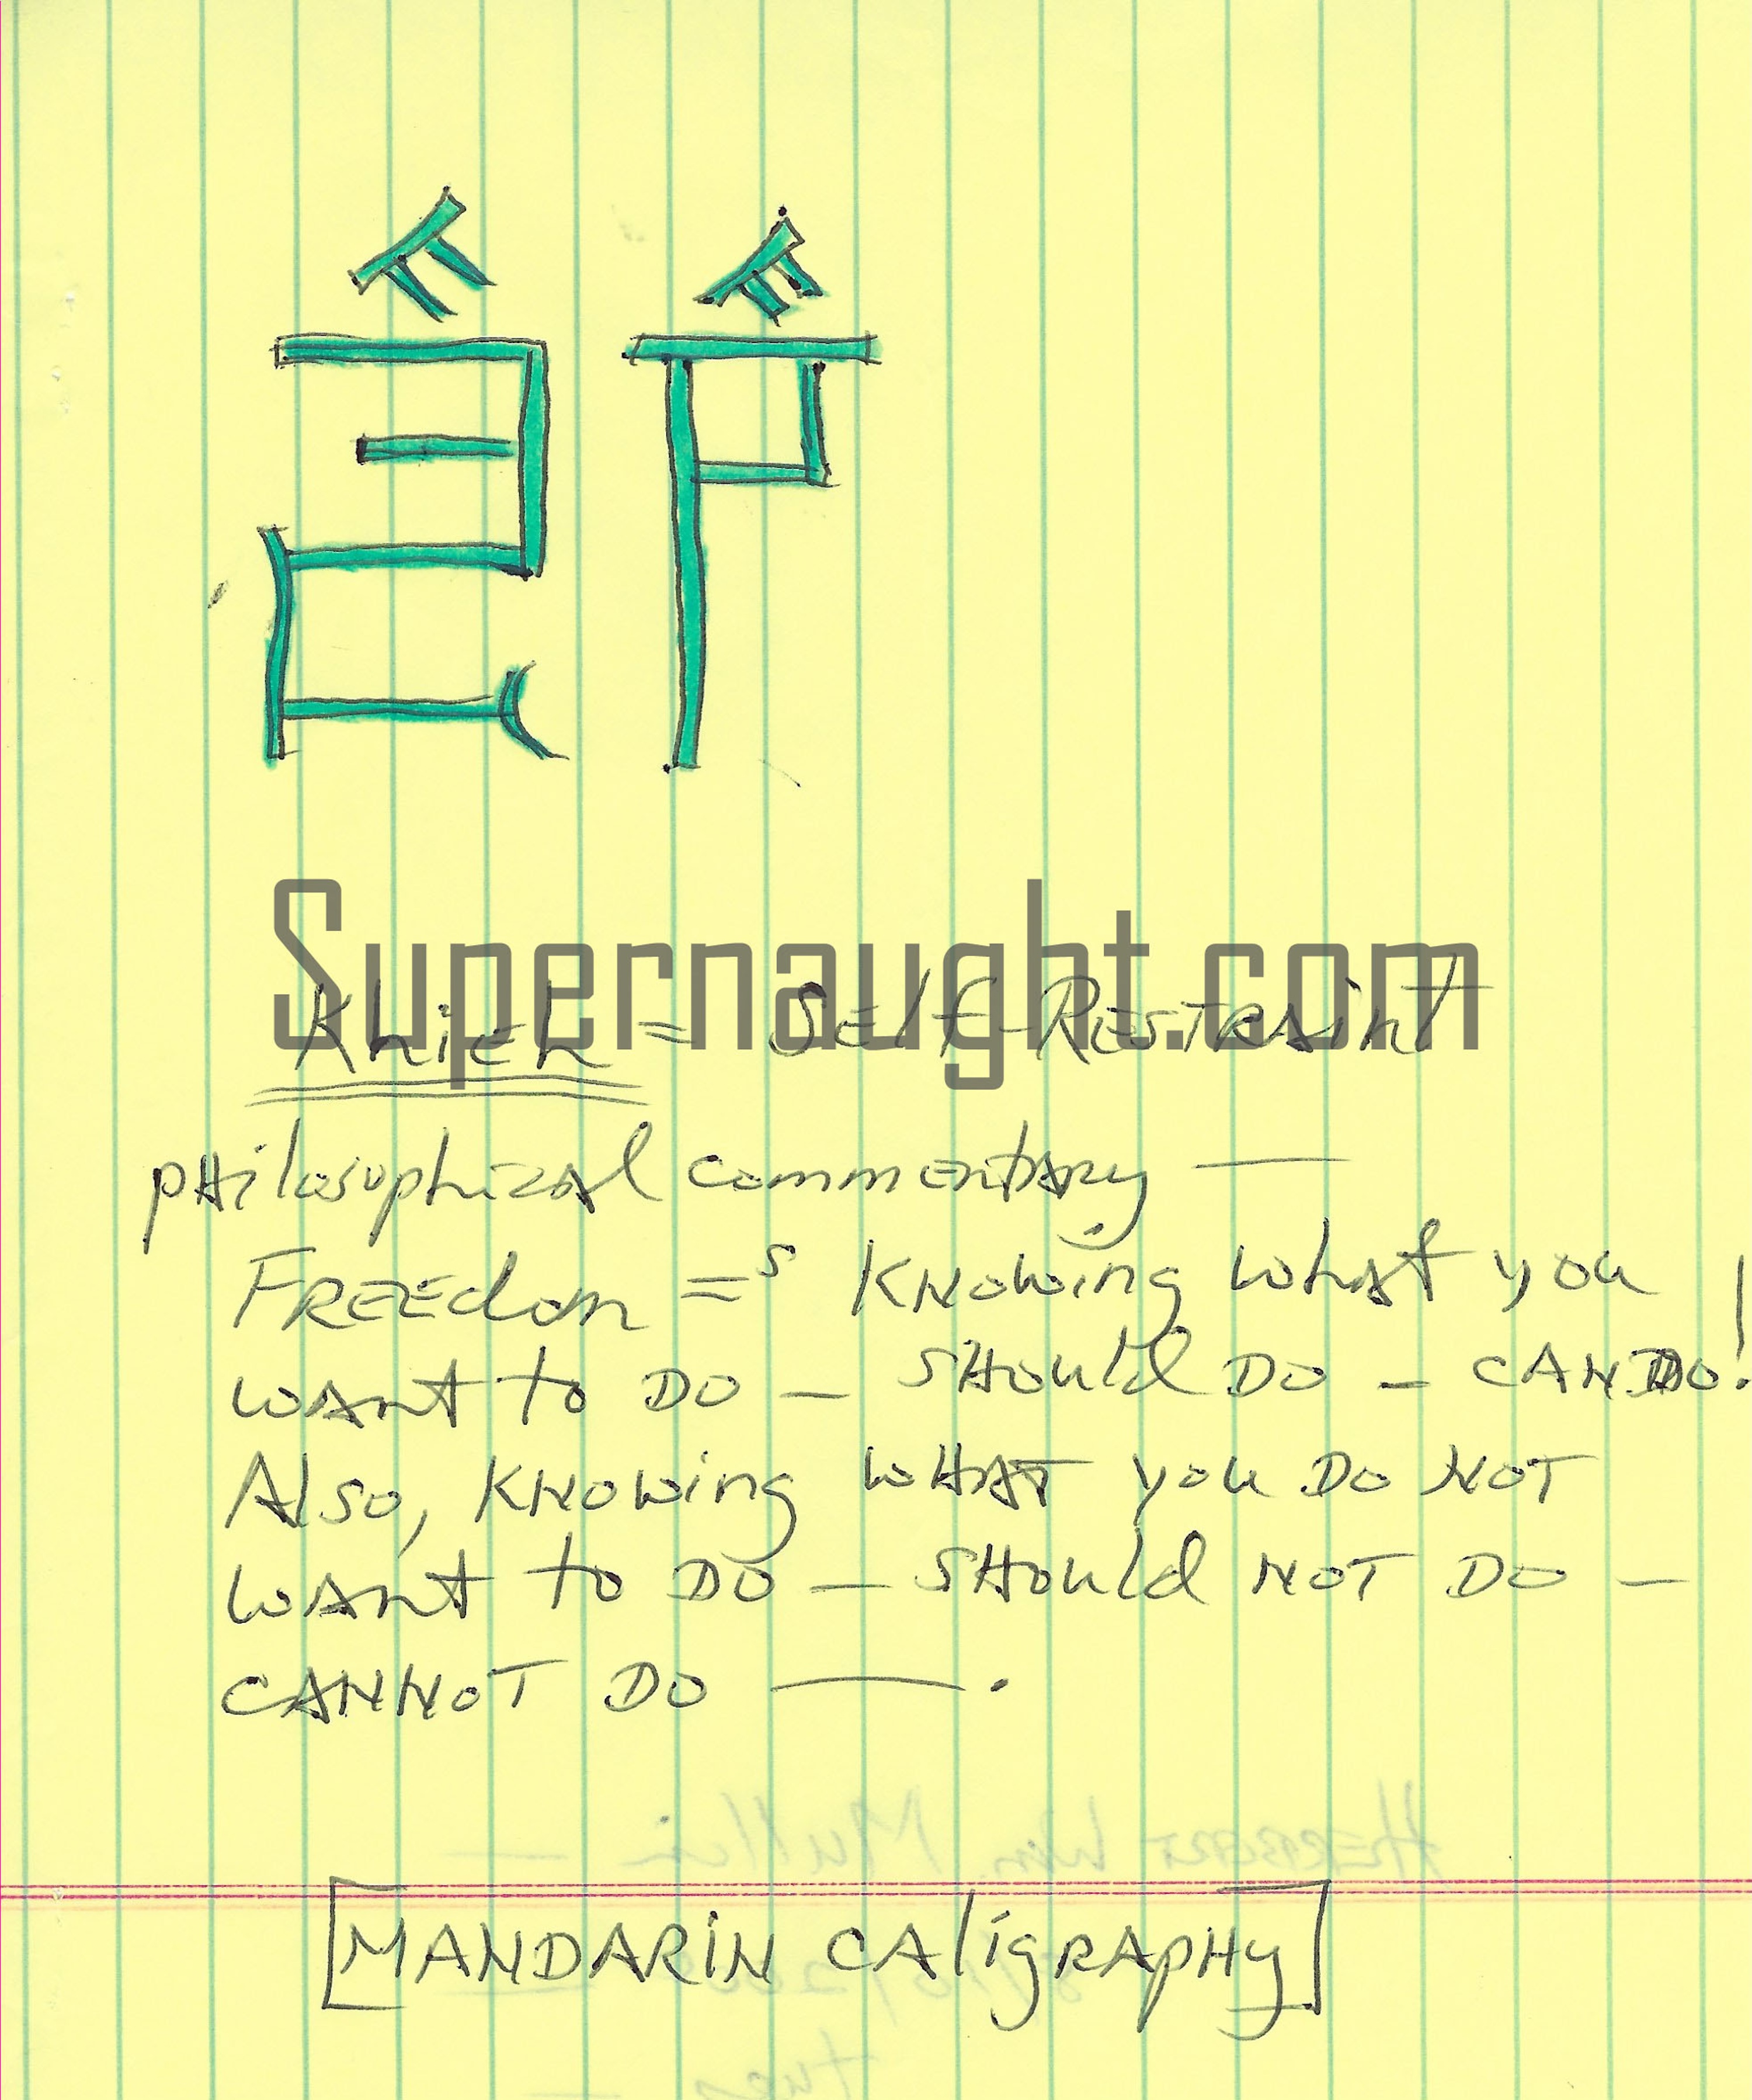 Supernaught.com
Khieh = Self-Restraint
philosophical commentary —
Freedom =s Knowing what you
want to DO — should DO — CAN DO!
Also, Knowing WHAT you DO NOT
want to DO — should NOT DO —
CANNOT DO — .
Herbert Wm. Mullin —
[MANDARIN CALIGRAPHY]
tues